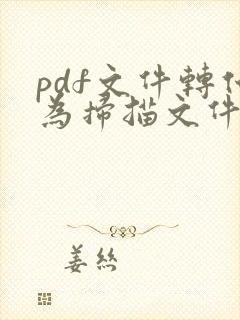 pdf文件轉化
為掃描文件
姜絲